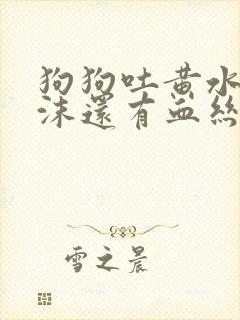 狗狗吐黄水
沫還有血絲
雪之晨